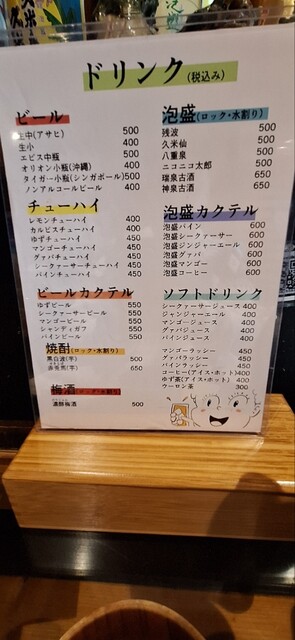 ドリンク(税込み)
ビール
生中(アサヒ) 500
生小 400
エビス中瓶 500
オリオン小瓶(沖縄) 400
タイガー小瓶(シンガポール) 500
ノンアルコールビール 400
チューハイ
レモンチューハイ 400
カルピスチューハイ 400
ゆずチューハイ 450
マンゴーチューハイ 450
グァバチューハイ 450
シークァーサーチューハイ 450
パインチューハイ 450
ビールカクテル
ゆずビール 550
シークァーサービール 550
マンゴービール 550
シャンディガフ 550
パインビール 550
焼酎(ロック・水割り)
黒白波(芋) 500
赤兎馬(芋) 650
梅酒(ロック・水割り)
濃醇梅酒 500
泡盛(ロック・水割り)
残波 500
久米仙 500
八重泉 500
ニコニコ太郎 500
瑞泉古酒 650
神泉古酒 650
泡盛カクテル
泡盛パイン 600
泡盛シークァーサー 600
泡盛ジンジャーエール 600
泡盛グァバ 600
泡盛マンゴー 600
泡盛コーヒー 600
ソフトドリンク
シークァーサージュース 400
ジャンジャーエール 400
マンゴージュース 400
グァバジュース 400
パインジュース 400
マンゴーラッシー 450
グァバラッシー 450
パインラッシー 450
コーヒー(アイス・ホット) 400
ゆず茶(アイス・ホット) 400
ウーロン茶 300